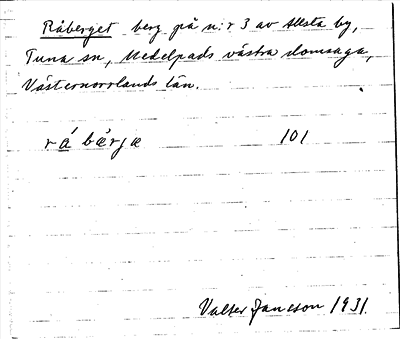 Råberget berg på n:r 3 av Allsta by,
Tuna sn, Medelpads västra domsaga,
Västernorrlands län.
rá bærjæ 101
Valter Jansson 1931.